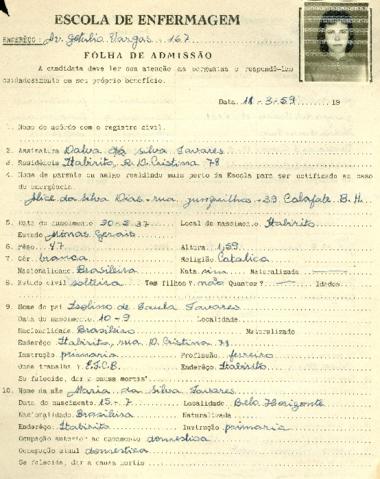 ESCOLA DE ENFERMAGEM
ENDERÊÇO: Av. Getulio Vargas - 167
FÔLHA DE ADMISSÃO
A candidata deve ler com atenção as perguntas e respondê-las
cuidadosamente em seu próprio benefício.
Data 11-3-59 19
1. Nome de acôrdo com o registro civil.
2. Assinatura Dalva da Silva Tavares
3. Residência Itabirito, R. D. Cristina 78
4. Nome de parente ou amigo residindo mais perto da Escola para ser notificado em caso
de emergência.
Alice da Silva Dias - rua Junquilhos - 39 Calafate B.H.
5. Data do nascimento 30-5-37 Local de nascimento Itabirito
Estado Minas Gerais
6. Pêso 47 Altura 1,59
7. Côr branca Religião Catolica
Nacionalidade Brasileira Nata sim Naturalizada
8. Estado civil solteira Tem filhos? não Quantos? Idades
9. Nome do pai de Paula Tavares
Data do nascimento 10-9 Localidade
Nacionalidade Brasileiro Naturalizado
Enderêço Itabirito, rua D. Cristina 78
Instrução primaria Profissão ferreiro
Onde trabalha E.F.C.B. Enderêço Itabirito
Se falecido, dar a causa mortis
10. Nome da mãe Maria da Silva Tavares
Data do nascimento 15-7 Localidade Belo Horizonte
Nacionalidade Brasileira Naturalizada
Enderêço Itabirito Instrução primaria
Ocupação anterior ao casamento domestica
Ocupação atual domestica
Se falecida, dar causa mortis